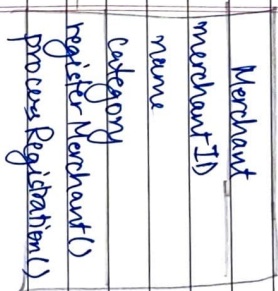 Merchant
merchantID
name
category
registerMerchant()
processRegistration()